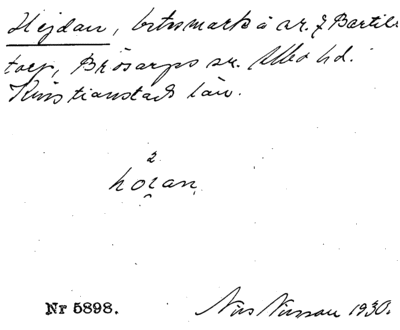 Hejdan, betesmark å ar. 7 Bartils
torp, Brösarps sn. Albo hd.
Kristianstads län.
2
hozan.
Nr 5898. Nils Nilsson 1930.